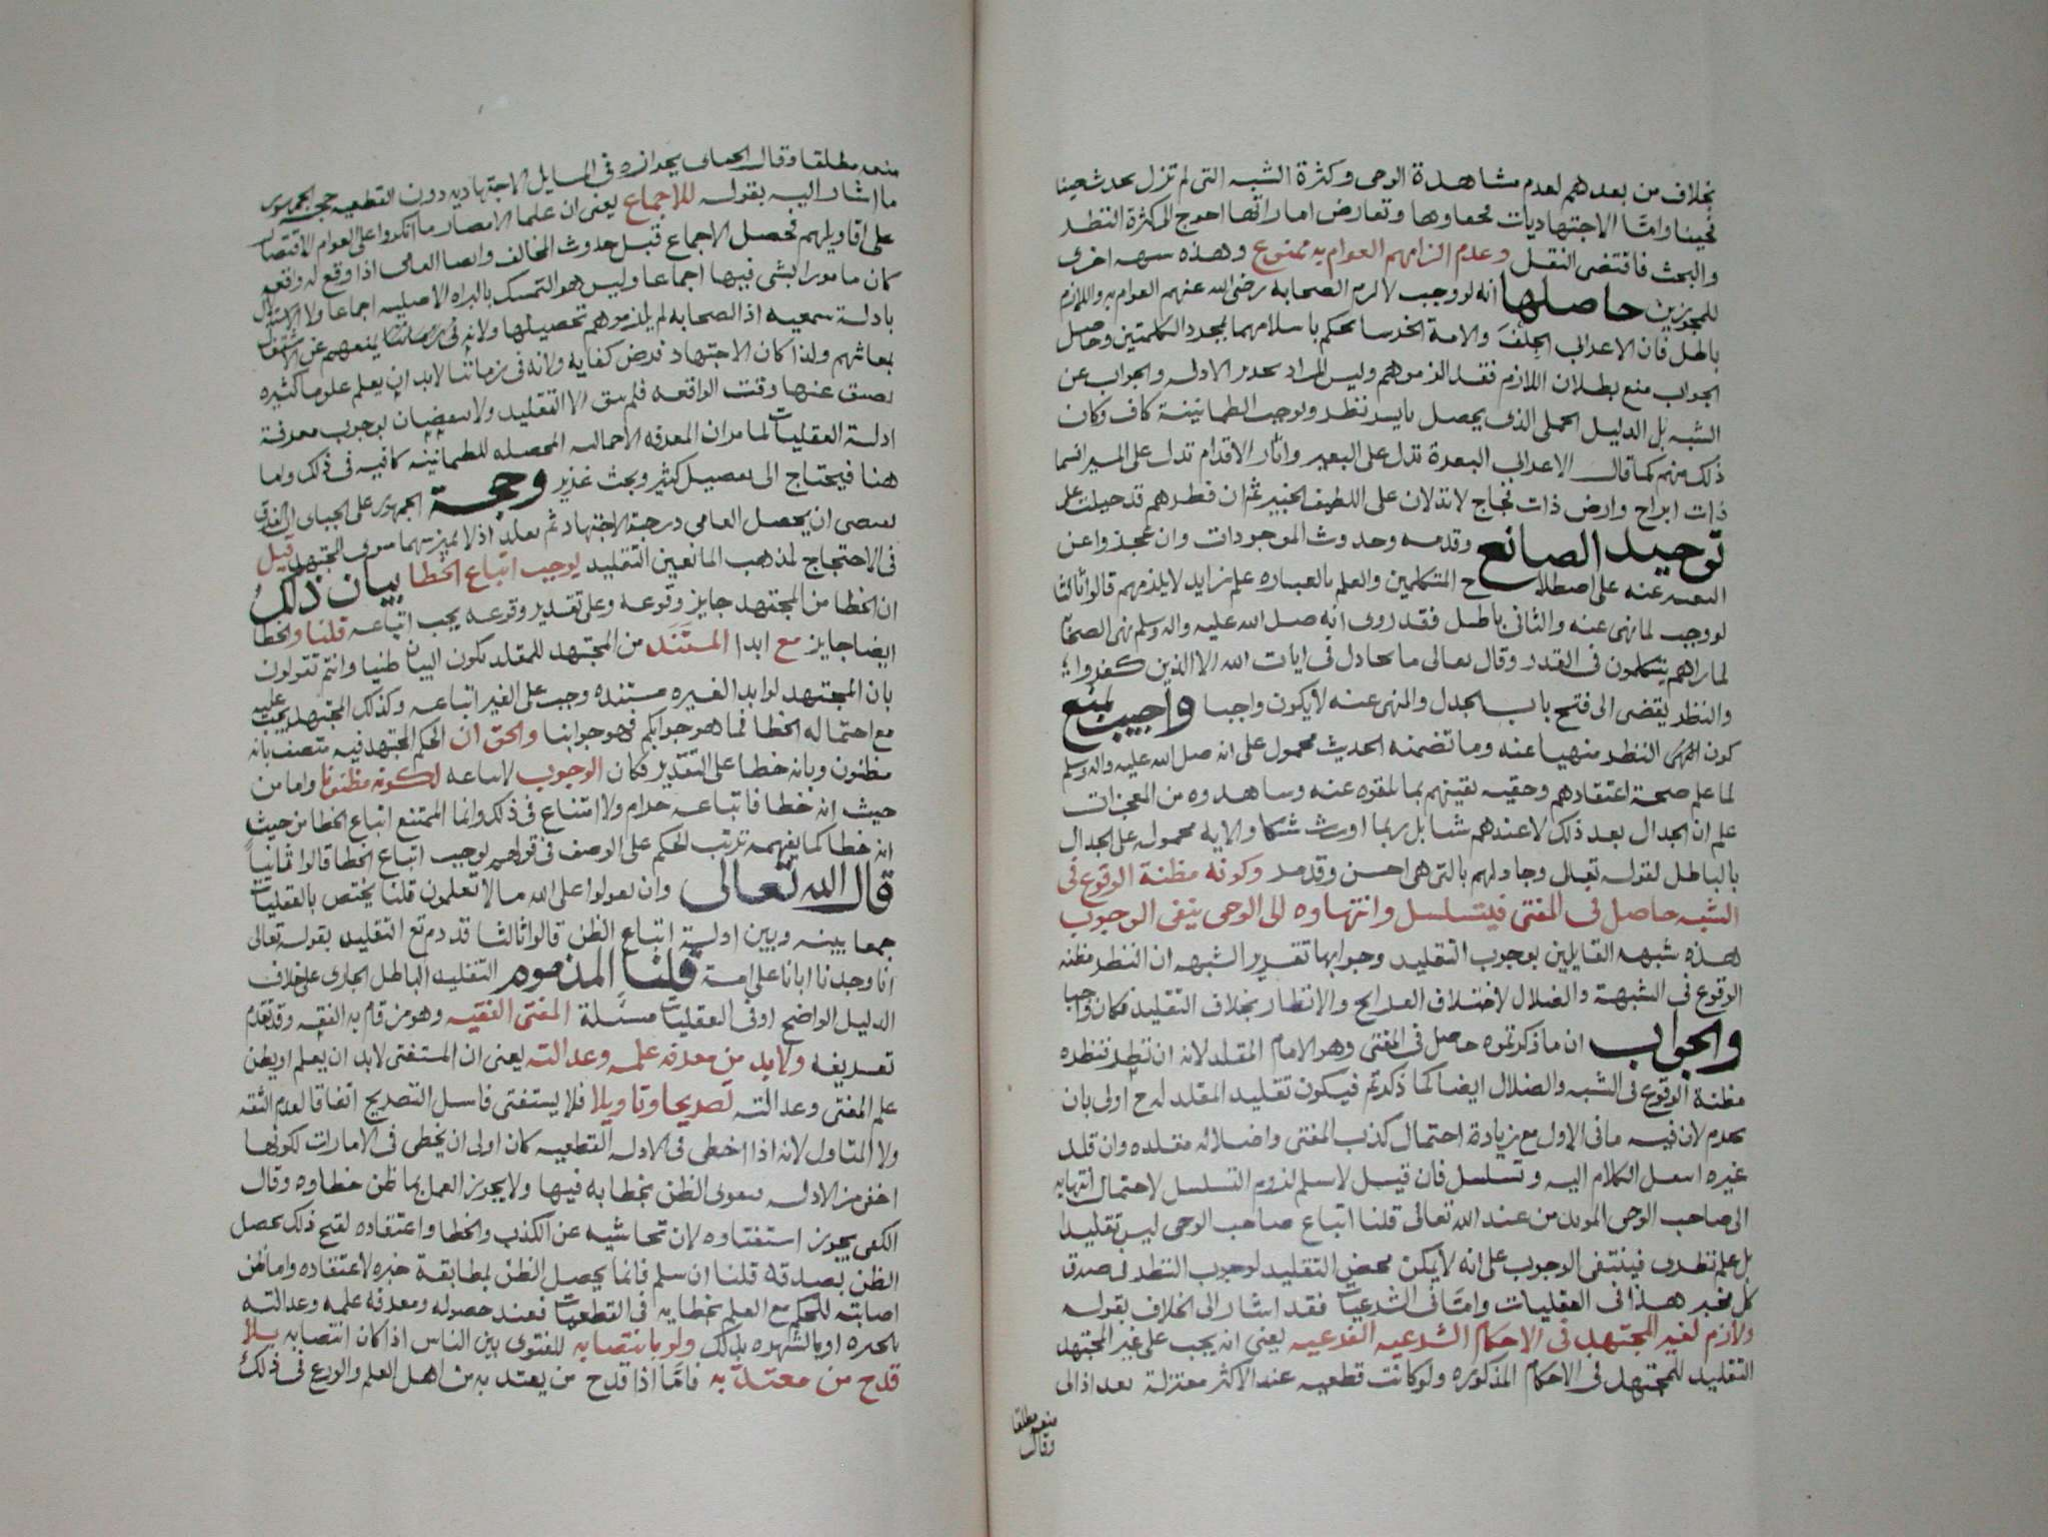 بخلاف من بعدهم لعدم مشاهدة الوحى وكثرة الشبه التى لم تزل تحدث حينا
فحينا وامّا الاجتهاديات فخفاوها وتعارض اماراتها احوج الى كثرة النظر
والبحث فاقتضى النقل وعدم الزامهم العوام به ممنوع وهذه شبهه اخرى
للمجوزين حاصلها انه لو وجب لالزم الصحابه رضى الله عنهم العوام به واللازم
باطل فان الاعرابى الجلف والامة الخرسا يحكم باسلامهما بمجرد الكلمتين وحاصل
الجواب منع بطلان اللازم فقد الزموهم وليس المراد تحرير الادله والجواب عن
الشبه بل الدليل الجملى الذى يحصل بايسر نظر ويوجب الطمانينة كاف وكان
ذلك منهم كما قال الاعرابى البعرة تدل على البعير واثار الاقدام تدل على المسير افسما
ذات ابراج وارض ذات فجاج لا تدلان على اللطيف الخبير ثم ان فطرهم قد جبلت على
توحيد الصانع وقدمه وحدوث الموجودات وان عجزوا عن
التعبير عنه على اصطلاح المتكلمين والعلم بالعباره علم زايد لا يلزمهم قالوا ثالثا
لو وجب لما نهى عنه والثانى باطل فقد روى انه صل الله عليه واله وسلم نهى الصحابه
لما راهم يتكلمون فى القدر وقال تعالى ما يجادل فى ايات الله الا الذين كفروا
والنظر يفضى الى فتح باب الجدل والمنهى عنه لا يكون واجبا واجيب بمنع
كون النظر منهيا عنه وما تضمنه الحديث محمول على انه صل الله عليه واله وسلم
لما علم صحة اعتقادهم وحقيه يقينهم بما تلقوه عنه وشاهدوه من المعجزات
علم ان الجدال بعد ذلك لا عندهم شيا بل ربما اورث شكا والايه محموله على الجدال
بالباطل لقوله تعالى وجادلهم بالتى هى احسن وقد مر وكونه مظنة الوقوع فى
الشبه حاصل فى المفتى فيتسلسل وانتهاوه الى الوحى ينفى الوجوب
هذه شبهه القايلين بوجوب التقليد وجوابها تقرير الشبهه ان النظر مظنه
الوقوع فى الشبهة والضلال لاختلاف القرايح والانظار بخلاف التقليد فكان واجبا
والجواب ان ما ذكرتموه حاصل فى المفتى وهو الامام المقلد لانه ان نظر فنظره
مظنة الوقوع فى الشبه والضلال ايضا كما ذكرتم فيكون تقليد المقلد له ح اولى بان
يحرم لان فيه ما فى الاول مع زيادة احتمال كذب المفتى واضلاله مقلده وان قلد
غيره انتقل الكلام اليه وتسلسل فان قيل لا نسلم لزوم التسلسل لاحتمال انتهايه
الى صاحب الوحى المويد من عند الله تعالى قلنا اتباع صاحب الوحى ليس تقليدا
بل علم نظرى فينتفى الوجوب على انه لا يكن محض التقليد لوجوب النظر فى صدق
كل مخبر هذا فى العقليات وامّا فى الشرعيات فقد اشار الى الخلاف بقوله
ولازم لغير المجتهد فى الاحكام الشرعيه الفرعيه يعنى انه يجب على غير المجتهد
التقليد للمجتهد فى الاحكام المذكوره ولو كانت قطعيه عند الاكثر معتزلة بغداد الى
منعه مطلقا
وقال
منعه مطلقا وقال الجباى بجوازه فى المسايل الاجتهاديه دون القطعيه حجة الجمهور
ما اشار اليه بقوله للاجماع يعنى ان علما الامصار ما انكروا على العوام الاقتصار
على اقاويلهم فحصل الاجماع قبل حدوث المخالف وايضا العامى اذا وقع له واقعه
كان مامورا بشى فيها اجماعا وليس هو التمسك بالبراه الاصليه اجماعا ولا الاستدلال
بادلة سمعيه اذ الصحابه لم يلزموهم تحصيلها ولانه فى زماننا يمنعهم عن الاشتغال
بمعاشهم ولذا كان الاجتهاد فرض كفايه ولانه فى زماننا لابد ان يعلم علوما كثيره
يضيق عنها وقت الواقعه فلم يبق الا التقليد ولا ينقضان بوجوب معرفة
ادلة العقليات لما مر ان المعرفه الاجماليه المحصله للطمانينه كافيه فى ذلك واما
هنا فيحتاج الى تفصيل كثير وبحث غزير وحجة الجمهور على الجباى ان الفرق
يقتضى ان يحصل العامى درجة الاجتهاد ثم يقلد اذ لا يميز بينهما سوى المجتهد قيل
فى الاحتجاج لمذهب المانعين التقليد يوجب اتباع الخطا بيان ذلك
ان الخطا من المجتهد جايز وقوعه وعلى تقدير وقوعه يجب اتباعه قلنا والخطا
ايضا جايز مع ابدا المستند من المجتهد للمقلد بكون البيان ظنيا وانتم تقولون
بان المجتهد لو ابدا لغيره مستنده وجب على الغير اتباعه وكذلك المجتهد يجب عليه
مع احتماله الخطا فما هو جوابكم فهو جوابنا والحق ان الحكم المجتهد فيه متصف بانه
مظنون وبانه خطا على التقدير فكان الوجوب لاتباعه لكونه مظنونا واما من
حيث انه خطا فاتباعه حرام ولا امتناع فى ذلك وانما الممتنع اتباع الخطا من حيث
انه خطا كما يفهمه ترتب الحكم على الوصف فى قولهم يوجب اتباع الخطا قالوا ثانيا
قال الله تعالى وان تقولوا على الله ما لا تعلمون قلنا يختص بالعقليات
جمعا بينه وبين ادلة اتباع الظن قالوا ثالثا قد ذم تع التقليد بقوله تعالى
انا وجدنا ابانا على امة قلنا المذموم التقليد الباطل الجارى على خلاف
الدليل الواضح او فى العقليات مسئلة المفتى الفقيه وهو من قام به الفقه وقد تقدم
تعريفه ولابد من معرفة علمه وعدالته يعنى ان المستفتى لابد ان يعلم او يظن
علم المفتى وعدالته تصريحا وتاويلا فلا يستفتى فاسق التصريح اتفاقا لعدم الثقه
ولا المتاول لانه اذا اخطى فى الادله القطعيه كان اولى ان يخطى فى الامارات لكونها
اخفى من الادله فيقوى الظن بخطابه فيها ولا يجوز العمل بما ظن خطاوه وقال
الكعبى يجوز استفتاوه لان تحاشيه عن الكذب والخطا واعتقاده لقبح ذلك يحصل
الظن بصدقه قلنا ان سلم فانما يحصل الظن بمطابقة خبره لاعتقاده واما ظن
اصابته للحكم مع العلم بخطايه فى القطعيات فعند حصوله ومعرفه علمه وعدالته
بالخبره او بالشهره بذلك ولو بانتصابه للفتوى بين الناس اذا كان انتصابه بلا
قدح من معتد به فامّا اذا قدح من يعتد به من اهل العلم والورع فى ذلك